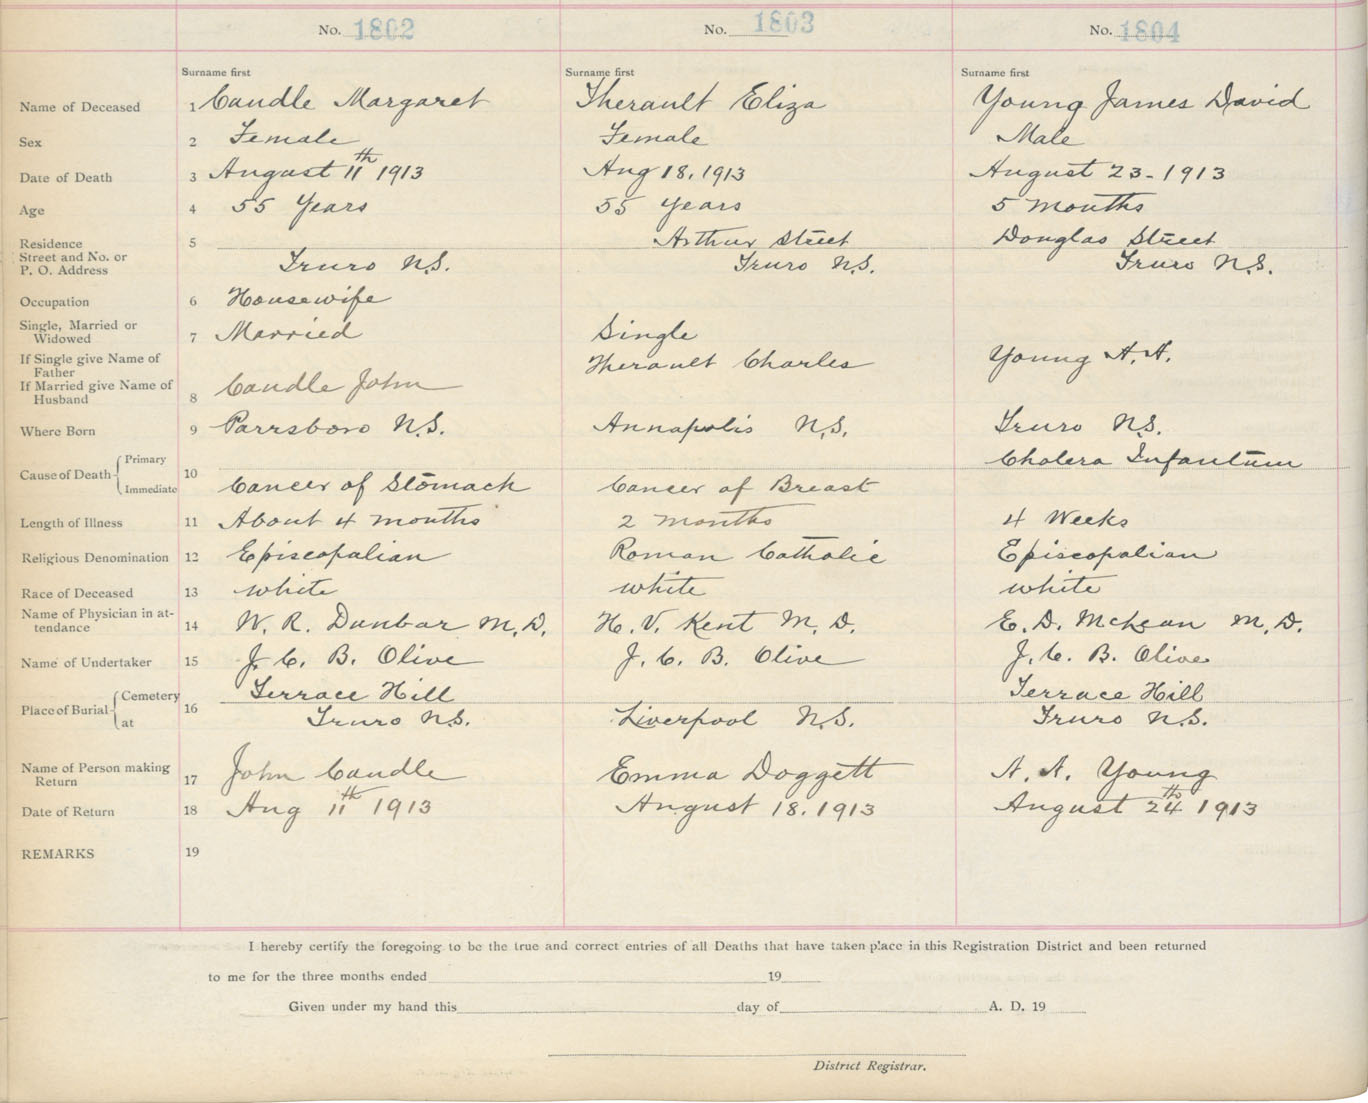 No. 1802 No. 1803 No. 1804
Surname first Surname first Surname first
Name of Deceased 1 Caudle Margaret Therault Eliza Young James David
Sex 2 Female Female Male
Date of Death 3 August 11th 1913 Aug 18, 1913 August 23 - 1913
Age 4 55 Years 55 Years 5 Months
Residence 5 Arthur Street Douglas Street
Street and No. or
P. O. Address Truro N.S. Truro N.S. Truro N.S.
Occupation 6 Housewife
Single, Married or
Widowed 7 Married Single
If Single give Name of
Father Therault Charles Young A. A.
If Married give Name of
Husband 8 Caudle John
Where Born 9 Parrsboro N.S. Annapolis N.S. Truro N.S.
Cause of Death Primary 10 Cholera Infantum
Immediate Cancer of Stomach Cancer of Breast
Length of Illness 11 About 4 months 2 months 4 Weeks
Religious Denomination 12 Episcopalian Roman Catholic Episcopalian
Race of Deceased 13 white white white
Name of Physician in at-
tendance 14 W. R. Dunbar M.D. H. V. Kent M.D. E. D. McLean M.D.
Name of Undertaker 15 J. C. B. Olive J. C. B. Olive J. C. B. Olive
Place of Burial Cemetery 16 Terrace Hill Terrace Hill
at Truro N.S. Liverpool N.S. Truro N.S.
Name of Person making
Return 17 John Caudle Emma Doggett A. A. Young
Date of Return 18 Aug 11th 1913 August 18, 1913 August 24th 1913
REMARKS 19
I hereby certify the foregoing to be the true and correct entries of all Deaths that have taken place in this Registration District and been returned
to me for the three months ended 19
Given under my hand this day of A. D. 19
District Registrar.